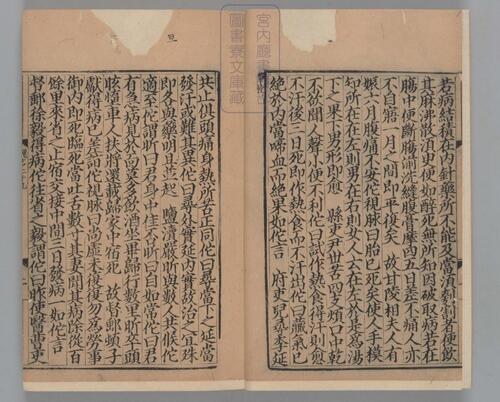 宮内廳書
圖書寮文庫藏
若病結積在内針藥所不能及當須刳割者便飲
其麻沸散須臾便如醉死無所知因破取病若在
腸中便斷腸湔洗縫腹膏摩四五日差不痛人亦
不自寤一月之間即平復矣 故甘陵相夫人有
娠六月腹痛不安佗視脉曰胎已死矣使人手摸
知所在在左則男在右則女人云在左於是爲湯
下之果下男形即愈 縣吏尹世苦四支煩口中乾
不欲聞人聲小便不利佗曰試作熱食得汗則愈
不汗後三日死即作熱食而不汗出佗曰藏氣已
絶於内當啼泣而絶果如佗言 府吏兒尋李延
旦
共止俱頭痛身熱所苦正同佗曰尋當下之延當
發汗或難其異佗曰尋外實延内實故治之宜殊
即各與藥明旦並起 鹽瀆嚴昕與數人共候佗
適至佗謂昕曰君身中佳否昕曰自如常佗曰君
有急病見於面莫多飲酒坐畢歸行數里昕卒頭
眩墮車人扶將還載歸家中宿死 故督郵頓子
獻得病已差詣佗視脉曰尚虛未得復勿爲勞事
御内即死臨死當吐舌數寸其妻聞其病除從百
餘里來省之止宿交接中間三日發病一如佗言
督郵徐毅得病佗往省之毅謂佗曰昨使醫曹吏